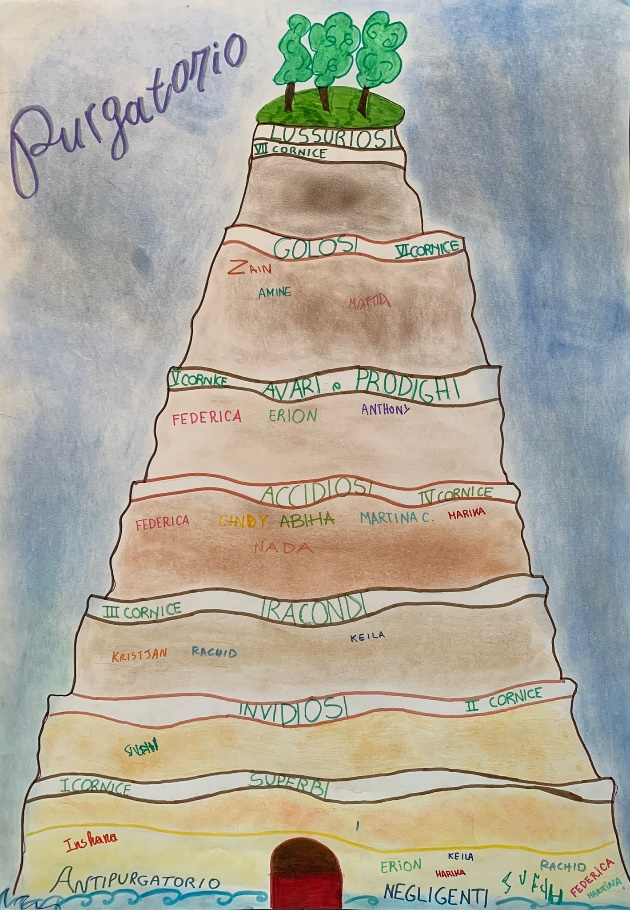 Purgatorio
LUSSURIOSI
VII CORNICE
GOLOSI VI CORNICE
ZAIN
AMINE
V CORNICE AVARI e PRODIGHI
FEDERICA ERION ANTHONY
ACCIDIOSI IV CORNICE
FEDERICA CINDY ABIHA MARTINA C. HARIKA
NADA
III CORNICE IRACONDI
KEILA
KRISTJAN RACHID
INVIDIOSI II CORNICE
I CORNICE SUPERBI
Inshara
ERION KEILA RACHID
HARIKA FEDERICA
ANTIPURGATORIO NEGLIGENTI MARTINA